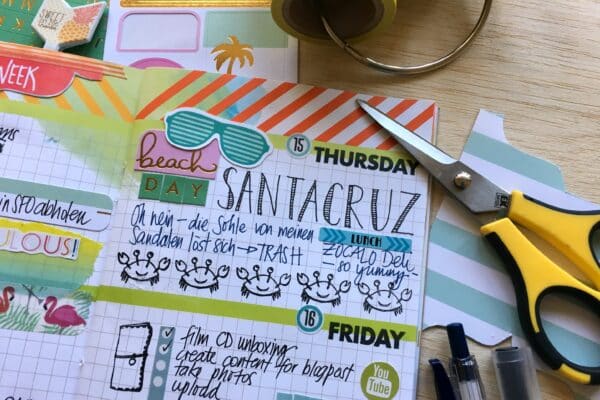 SWEET
WEEK
in SFO abholen
ULOUS!
beach
DAY
15
THURSDAY
SANTACRUZ
Oh nein – die Sohle von meinen
Sandalen löst sich → TRASH
LUNCH
ZOCALO Deli
so yummy
16
FRIDAY
film CD unboxing
create content for blogpost
take photos
upload
You
Tube